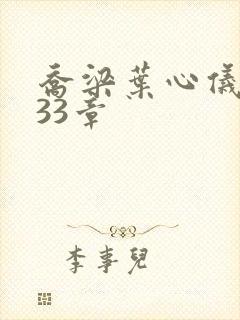 喬梁葉心儀
33章
李事兒